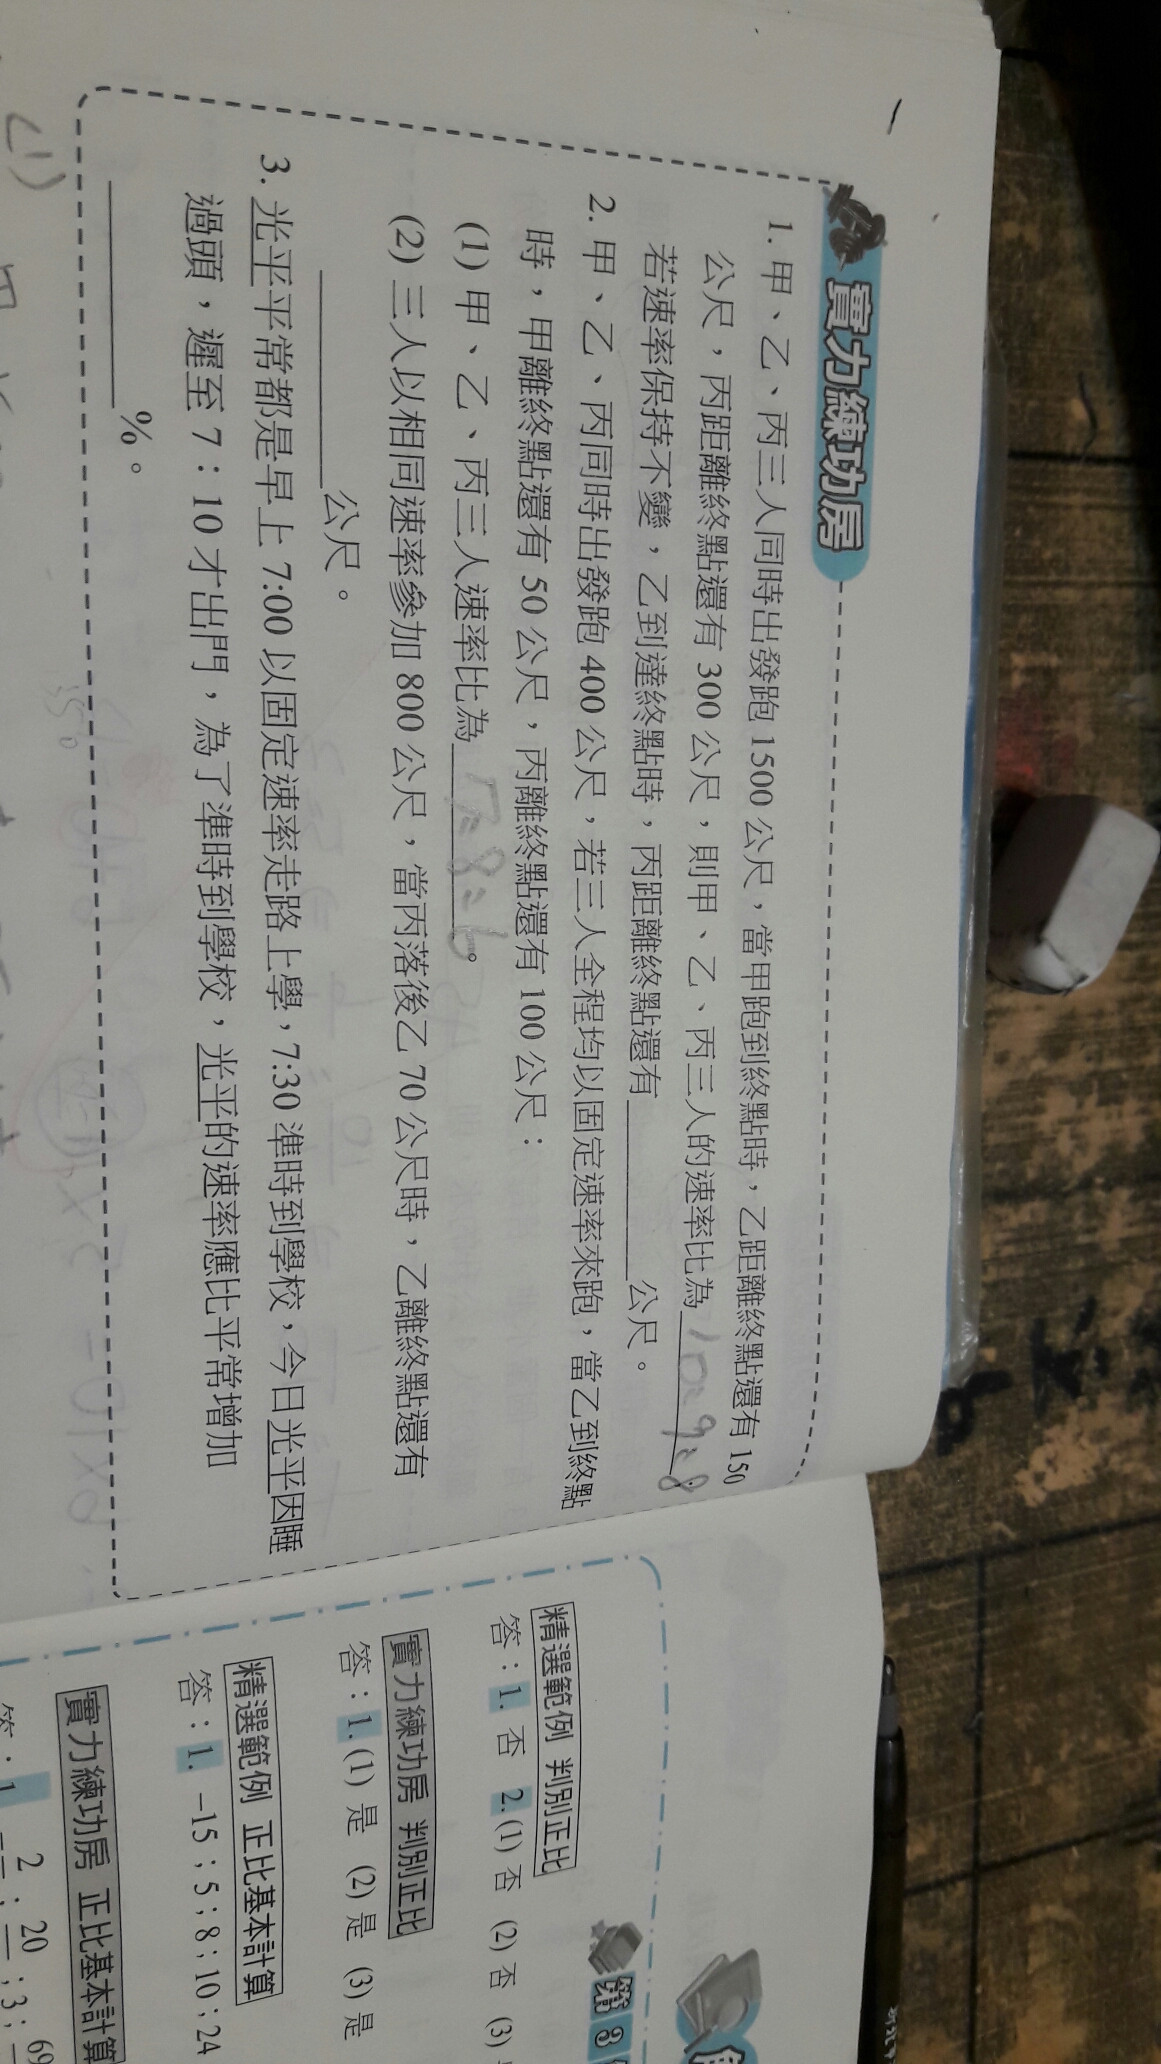 實力練功房
1. 甲、乙、丙三人同時出發跑 1500 公尺,當甲跑到終點時,乙距離終點還有 150
公尺,丙距離終點還有 300 公尺,則甲、乙、丙三人的速率比為 10:9:8。
若速率保持不變,乙到達終點時,丙距離終點還有________公尺。
2. 甲、乙、丙同時出發跑 400 公尺,若三人全程均以固定速率來跑,當乙到終點
時,甲離終點還有 50 公尺,丙離終點還有 100 公尺:
(1) 甲、乙、丙三人速率比為 7:8:6。
(2) 三人以相同速率參加 800 公尺,當丙落後乙 70 公尺時,乙離終點還有
________公尺。
3. 光平平常都是早上 7:00 以固定速率走路上學,7:30 準時到學校,今日光平因睡
過頭,遲至 7:10 才出門,為了準時到學校,光平的速率應比平常增加
________%。
(1)
第 3
精選範例 判別正比
答:1. 否 2.(1) 否 (2) 否 (3)
實力練功房 判別正比
答:1.(1) 是 (2) 是 (3) 是
精選範例 正比基本計算
答:1. −15;5;8;10;24
實力練功房 正比基本計算
答:1
2 20 69
;3;